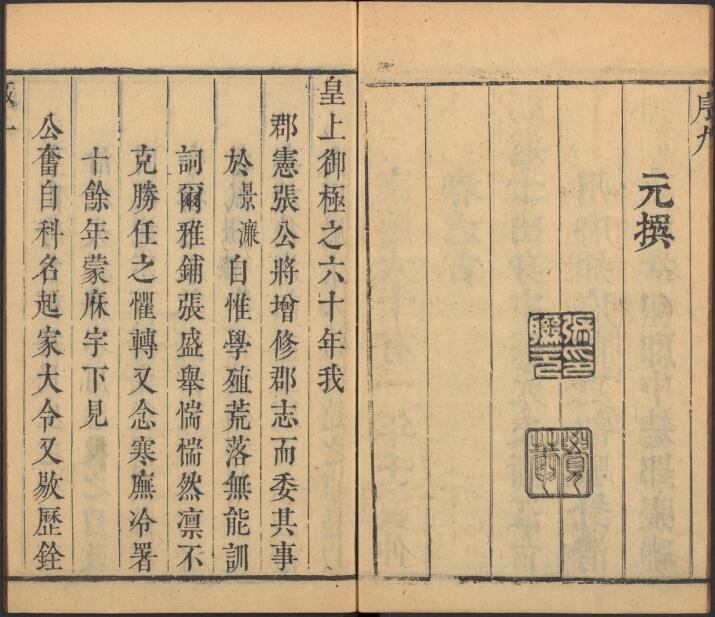 序九
元撰
張印
聯元
覽
皇上御極之六十年我
郡憲張公將增修郡志而委其事
於景濂自惟學殖荒落無能訓
詞爾雅鋪張盛舉惴惴然凛不
克勝任之懼轉又念寒廡冷署
十餘年蒙庥宇下見
公奮自科名起家大令又敭歷銓